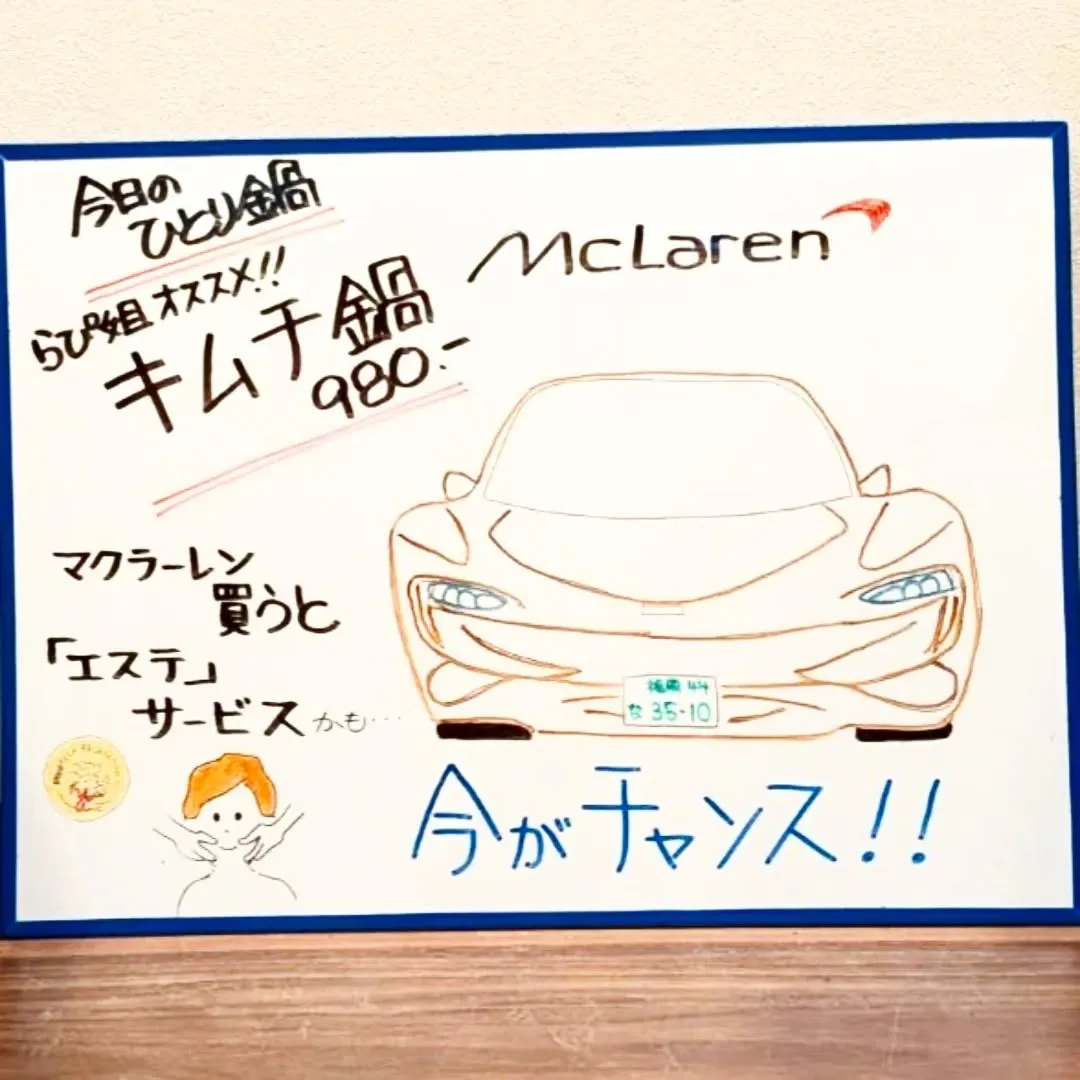 今日の
ひとり鍋
らぴ姐 オススメ!!
キムチ鍋
980.-
McLaren
マクラーレン
買うと
「エステ」
サービス かも…
な 35-10
今がチャンス!!